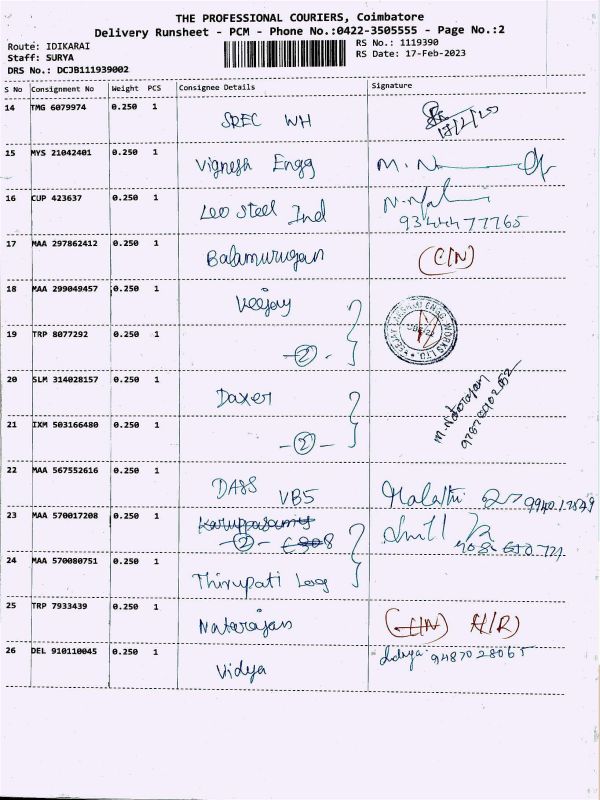 THE PROFESSIONAL COURIERS, Coimbatore
Delivery Runsheet - PCM - Phone No.:0422-3505555 - Page No.:2
Route: IDIKARAI
RS No.: 1119390
Staff: SURYA
RS Date: 17-Feb-2023
DRS No.: DCJB111939002
S No Consignment No Weight PCS Consignee Details Signature
14 TMG 6079974 0.250 1 SREC WH
15 MYS 21042401 0.250 1 Vignesh Engg M. N
16 CUP 423637 0.250 1 Leo Steel Ind
9344477765
17 MAA 297862412 0.250 1 Balamurugan (C/N)
18 MAA 299049457 0.250 1 Veejay
19 TRP 8077292 0.250 1 -2-
20 SLM 314028157 0.250 1 Daxer M. Natarajan
21 IXM 503166480 0.250 1 -2-
22 MAA 567552616 0.250 1 DASS VBS Malathi
23 MAA 570017208 0.250 1 Karuppasamy
-2-
24 MAA 570080751 0.250 1 Thirupati Log
25 TRP 7933439 0.250 1 Natarajan N/R)
26 DEL 910110045 0.250 1 Vidya 9487028065